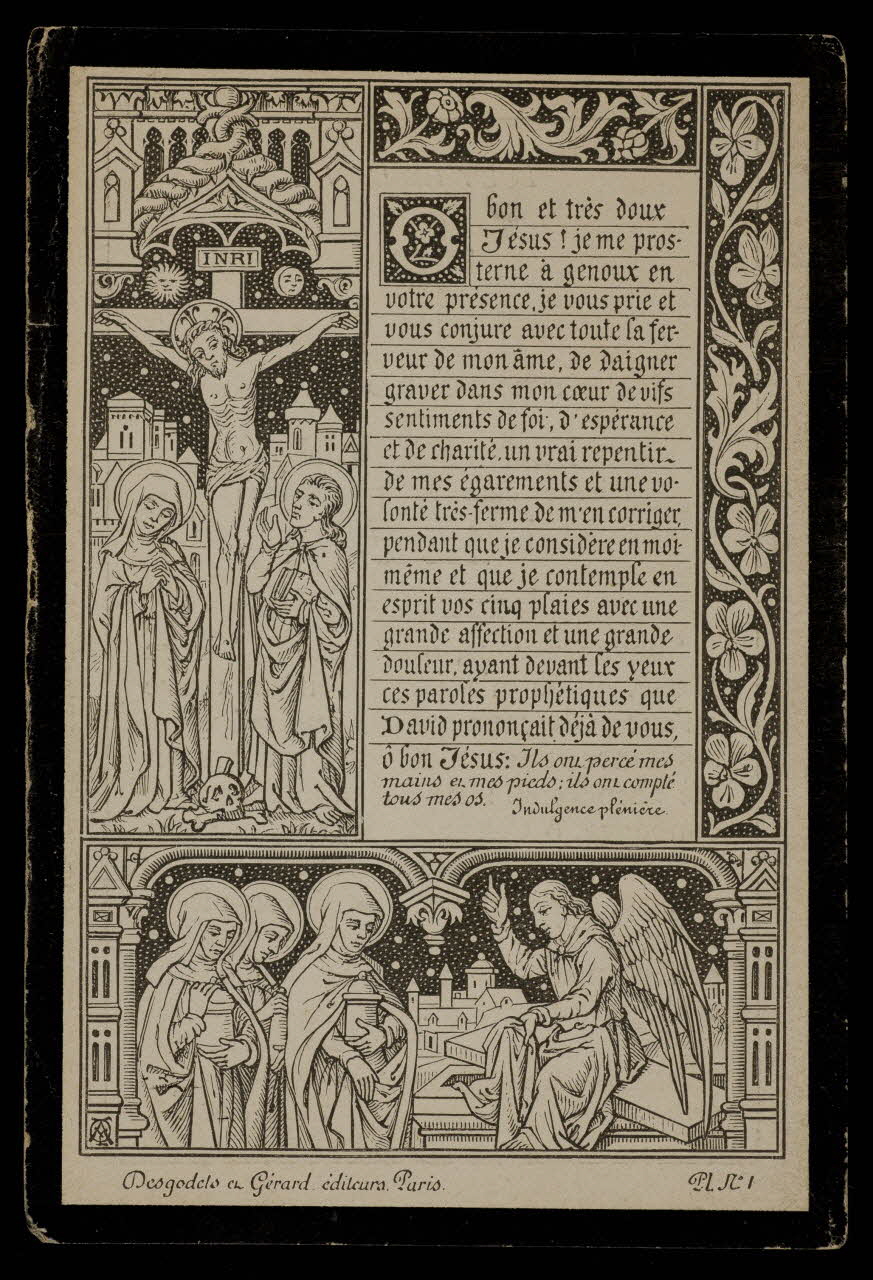 INRI
O bon et très doux
Jésus ! je me pros-
terne à genoux en
votre présence, je vous prie et
vous conjure avec toute la fer-
veur de mon âme, de daigner
graver dans mon cœur de vifs
sentiments de foi, d'espérance
et de charité, un vrai repentir
de mes égarements et une vo-
lonté très-ferme de m'en corriger,
pendant que je considère en moi-
même et que je contemple en
esprit vos cinq plaies avec une
grande affection et une grande
douleur, ayant devant les yeux
ces paroles prophétiques que
David prononçait déjà de vous,
ô bon Jésus: Ils ont percé mes
mains et mes pieds; ils ont compté
tous mes os.
Indulgence plénière.
Desgodets et Gérard éditeurs. Paris.
Pl. N° 1